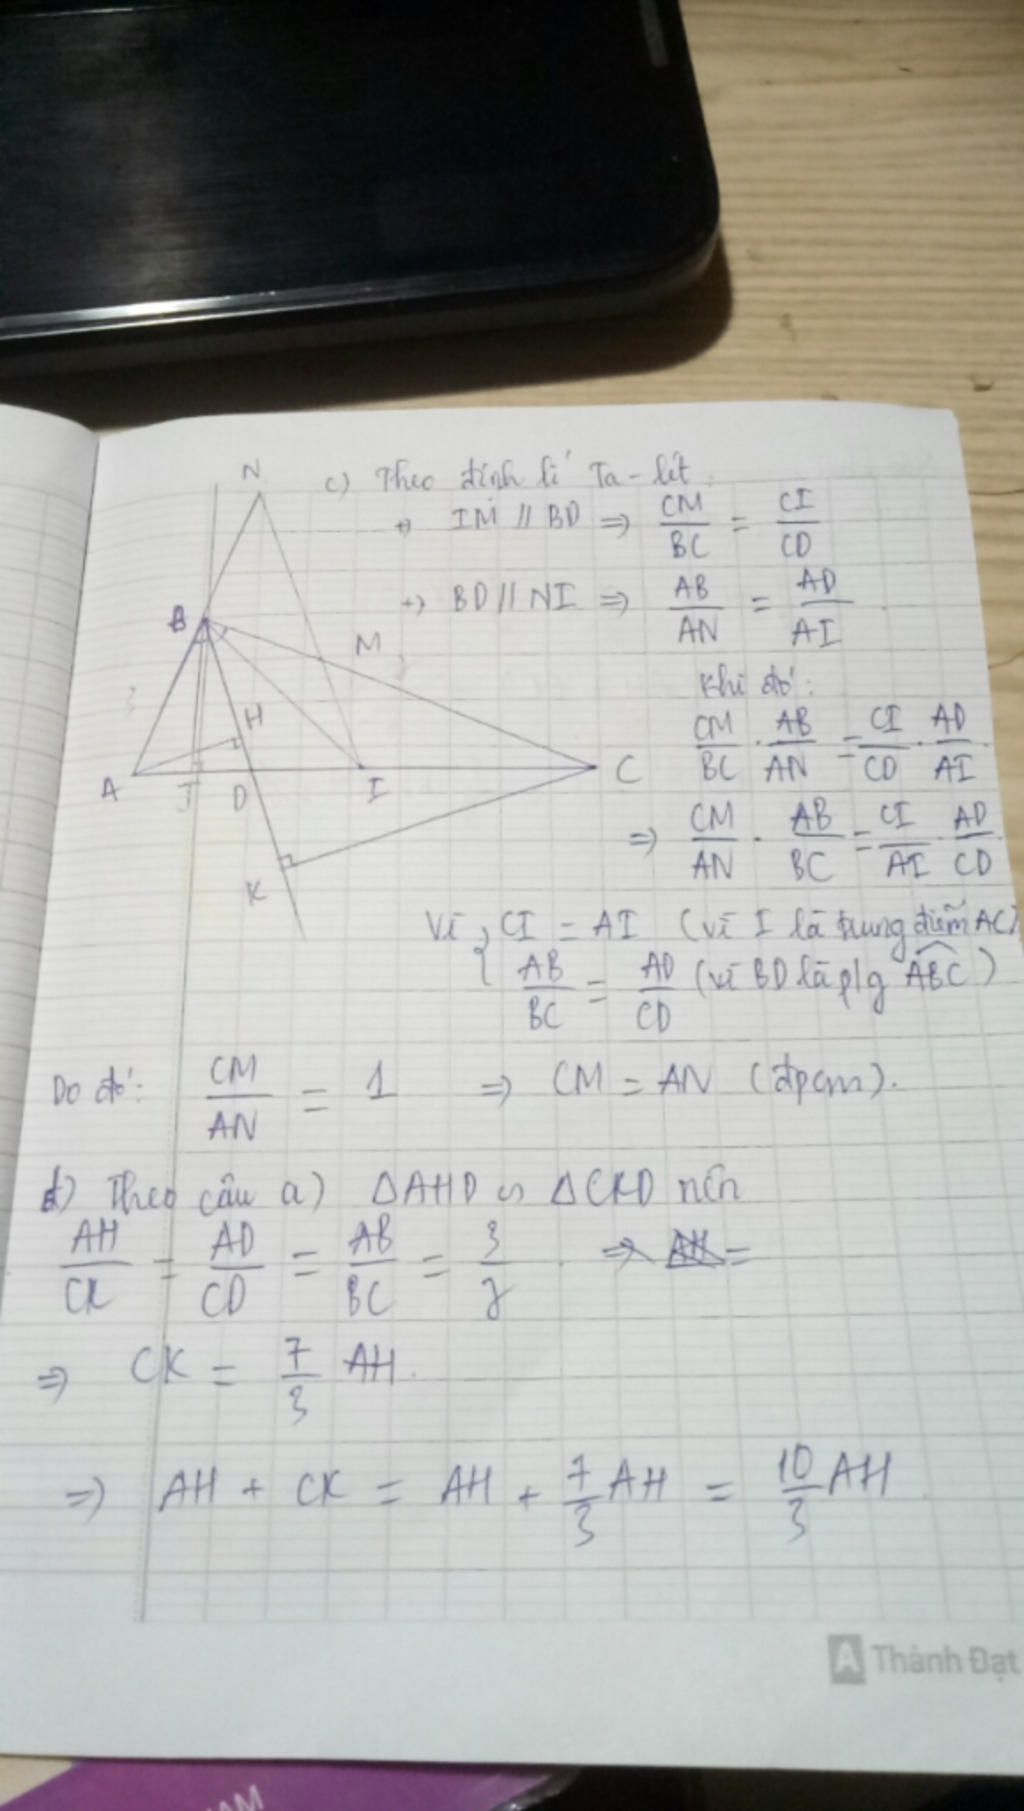 N
c) Theo định lí Ta-lét.
+) IM // BD => CM/BC = CI/CD
+) BD // NI => AB/AN = AD/AI.
B
M
3
Khi đó:
H
CM/BC . AB/AN = CI/CD . AD/AI.
A J D I C
=> CM/AN . AB/BC = CI/AI . AD/CD
K
Vì { CI = AI (vì I là trung điểm AC)
AB/BC = AD/CD (vì BD là p/g ABC)
Do đó: CM/AN = 1 => CM = AN (đpcm).
d) Theo câu a) ΔAHD ∽ ΔCKD nên
AH/CK = AD/CD = AB/BC = 3/7. =
=> CK = 7/3 AH.
=> AH + CK = AH + 7/3 AH = 10/3 AH.
A Thành Đạt